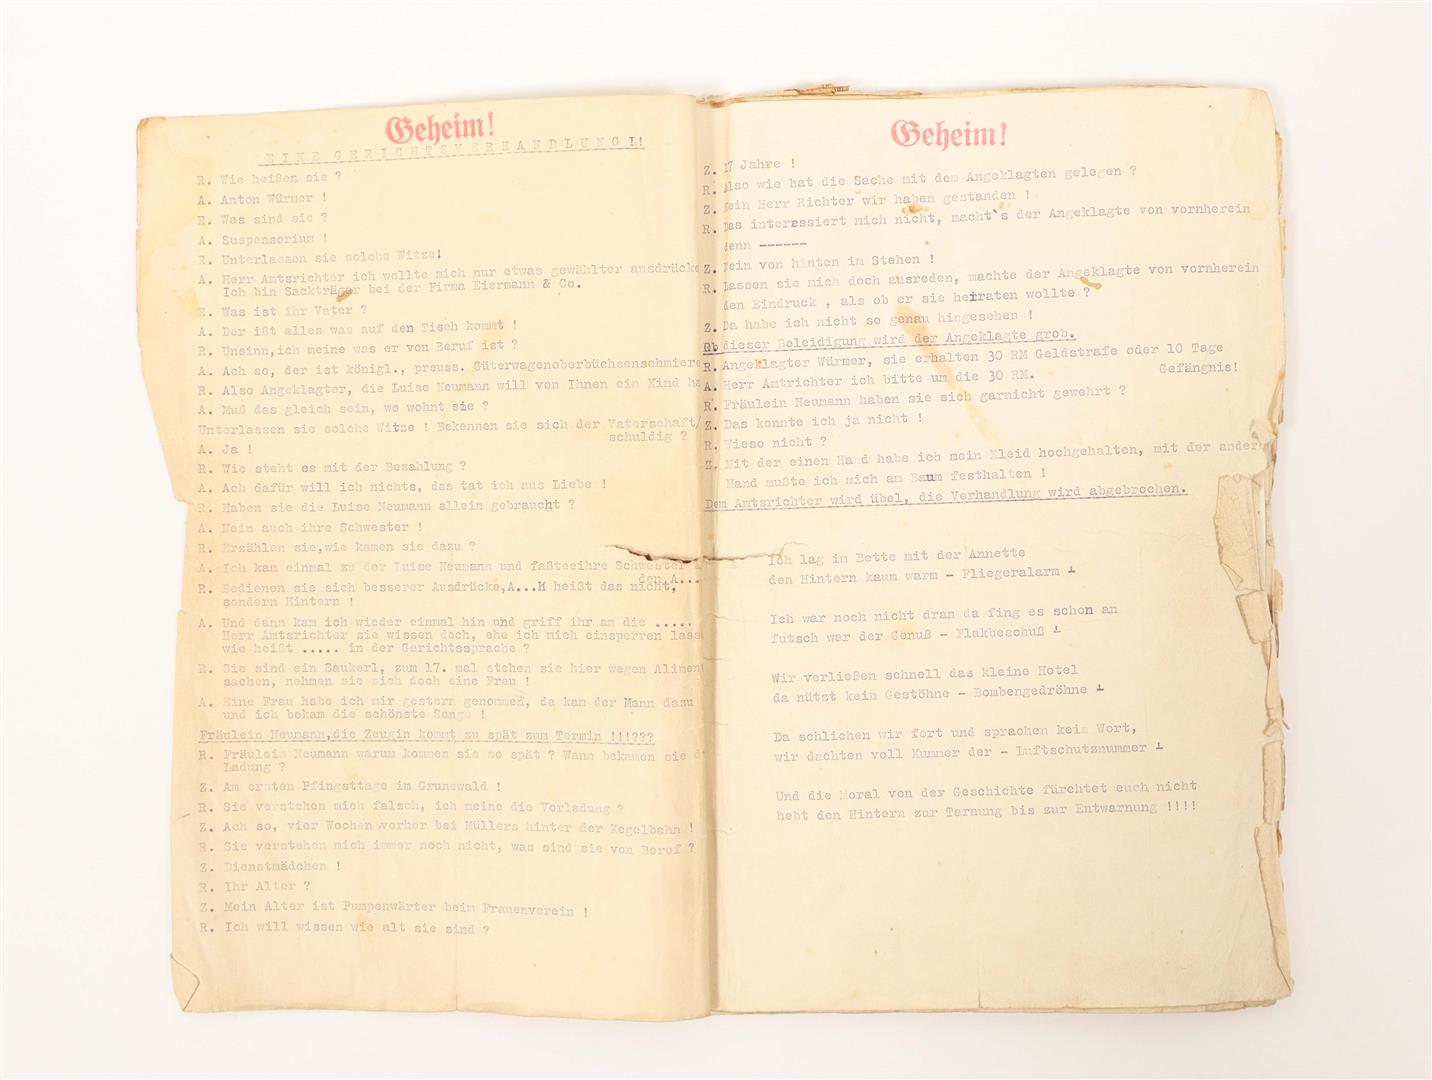 Geheim!
EINE GERICHTSVERHANDLUNG I!
R. Wie heißen sie ?
A. Anton Würmer !
R. Was sind sie ?
A. Suspensorium !
R. Unterlassen sie solche Witze!
A. Herr Amtsrichter ich wollte mich nur etwas gewählter ausdrücke
Ich bin Sackträger bei der Firma Eiermann & Co.
R. Was ist ihr Vater ?
A. Der ißt alles was auf den Tisch kommt !
R. Unsinn,ich meine was er von Beruf ist ?
A. Ach so, der ist königl., preuss. Güterwagenoberbüchsenschmiere
R. Also Angeklagter, die Luise Neumann will von Ihnen ein Kind ha
A. Muß das gleich sein, wo wohnt sie ?
Unterlassen sie solche Witze ! Bekennen sie sich der Vaterschaft/
schuldig ?
A. Ja !
R. Wie steht es mit der Bezahlung ?
A. Ach dafür will ich nichts, das tat ich aus Liebe !
R. Haben sie die Luise Neumann allein gebraucht ?
A. Nein auch ihre Schwester !
R. Erzählen sie,wie kamen sie dazu ?
A. Ich kam einmal zu der Luise Neumann und faßteeihre Schwester
den A...
R. Bedienen sie sich besserer Ausdrücke,A...H heißt das nicht,
sondern Hintern !
A. Und dann kam ich wieder einmal hin und griff ihr an die .....
Herr Amtsrichter sie wissen doch, ehe ich mich einsperren lass
wie heißt ..... in der Gerichtssprache ?
R. Sie sind ein Saukerl, zum 17. mal stehen sie hier wegen Alimen
sachen, nehmen sie sich doch eine Frau !
A. Eine Frau habe ich mir gestern genommen, da kam der Mann dazu
und ich bekam die schönste Senge !
Fräulein Neumann,die Zeugin kommt zu spät zum Termin !!!???
R. Fräulein Neumann warum kommen sie so spät ? Wann bekamen sie d
Ladung ?
Z. Am ersten Pfingsttage im Grunewald !
R. Sie verstehen mich falsch, ich meine die Vorladung ?
Z. Ach so, vier Wochen vorher bei Müllers hinter der Kegelbahn !
R. Sie verstehen mich immer noch nicht, was sind sie von Beruf ?
Z. Dienstmädchen !
R. Ihr Alter ?
Z. Mein Alter ist Pumpenwärter beim Frauenverein !
R. Ich will wissen wie alt sie sind ?
Geheim!
Z. 17 Jahre !
R. Also wie hat die Sache mit dem Angeklagten gelegen ?
Z. Nein Herr Richter wir haben gestanden !
R. Das interessiert mich nicht, macht's der Angeklagte von vornherein
denn ------
Z. Nein von hinten im Stehen !
R. Lassen sie mich doch ausreden, machte der Angeklagte von vornherein
den Eindruck , als ob er sie heiraten wollte ?
Z. Da habe ich nicht so genau hingesehen !
Ob dieser Beleidigung wird der Angeklagte grob.
R. Angeklagter Würmer, sie erhalten 30 RM Geldstrafe oder 10 Tage
Gefängnis!
A. Herr Amtrichter ich bitte um die 30 RM.
R. Fräulein Neumann haben sie sich garnicht gewehrt ?
Z. Das konnte ich ja nicht !
R. Wieso nicht ?
Z. Mit der einen Hand habe ich mein Kleid hochgehalten, mit der ander
Hand mußte ich mich am Baum festhalten !
Dem Amtsrichter wird übel, die Verhandlung wird abgebrochen.
Ich lag im Bette mit der Annette
den Hintern kaum warm - Fliegeralarm
Ich war noch nicht dran da fing es schon an
futsch war der Genuß - Flakbeschuß
Wir verließen schnell das kleine Hotel
da nützt kein Gestöhne - Bombengedröhne
Da schlichen wir fort und sprachen kein Wort,
wir dachten voll Kummer der - Luftschutznummer
Und die Moral von dex Geschichte fürchtet euch nicht
hebt den Hintern zur Tarnung bis zur Entwarnung !!!!